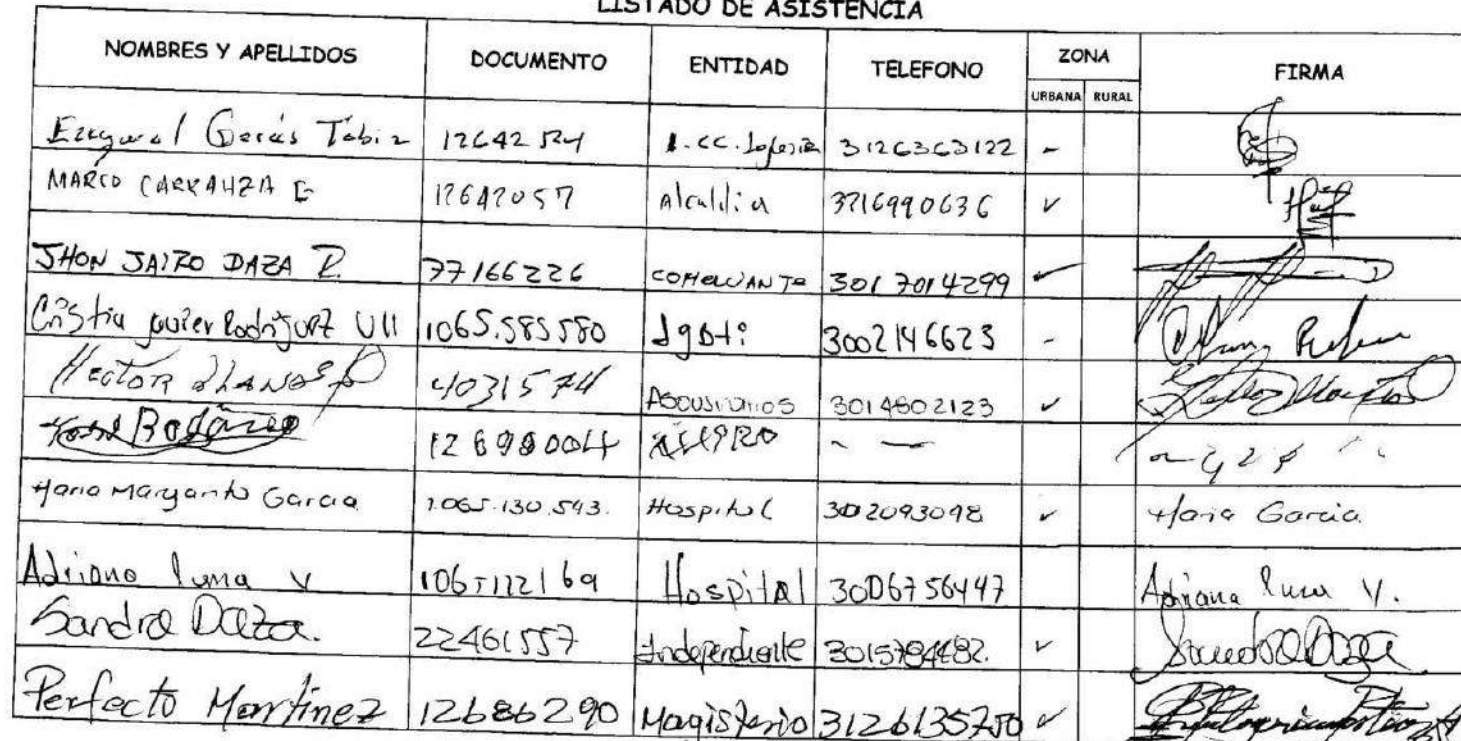 LISTADO DE ASISTENCIA
NOMBRES Y APELLIDOS DOCUMENTO ENTIDAD TELEFONO ZONA FIRMA
URBANA RURAL
12642 3126363122 -
MARCO CARRANZA 12642057 Alcaldia 3216990636 ✓
JHON JAIRO DAZA P. 77166226 COMERCIANTE 3017014299 ✓
Javier Rodriguez 1065.585580 lgbti 3002146623 -
HECTOR LLANOS 4031574 Asousuarios 3014802123 ✓
- -
Maria Margarita Garcia 1.065.130.593. Hospital 302093098 ✓ Maria Garcia
Adriana Luna V 1065112169 Hospital 3006756447 Adriana Luna V.
Sandra Daza. 22461557 Independiente 3015784482. ✓ Sandra Daza
Perfecto Martinez 12686290 Magisterio 3126135750 ✓